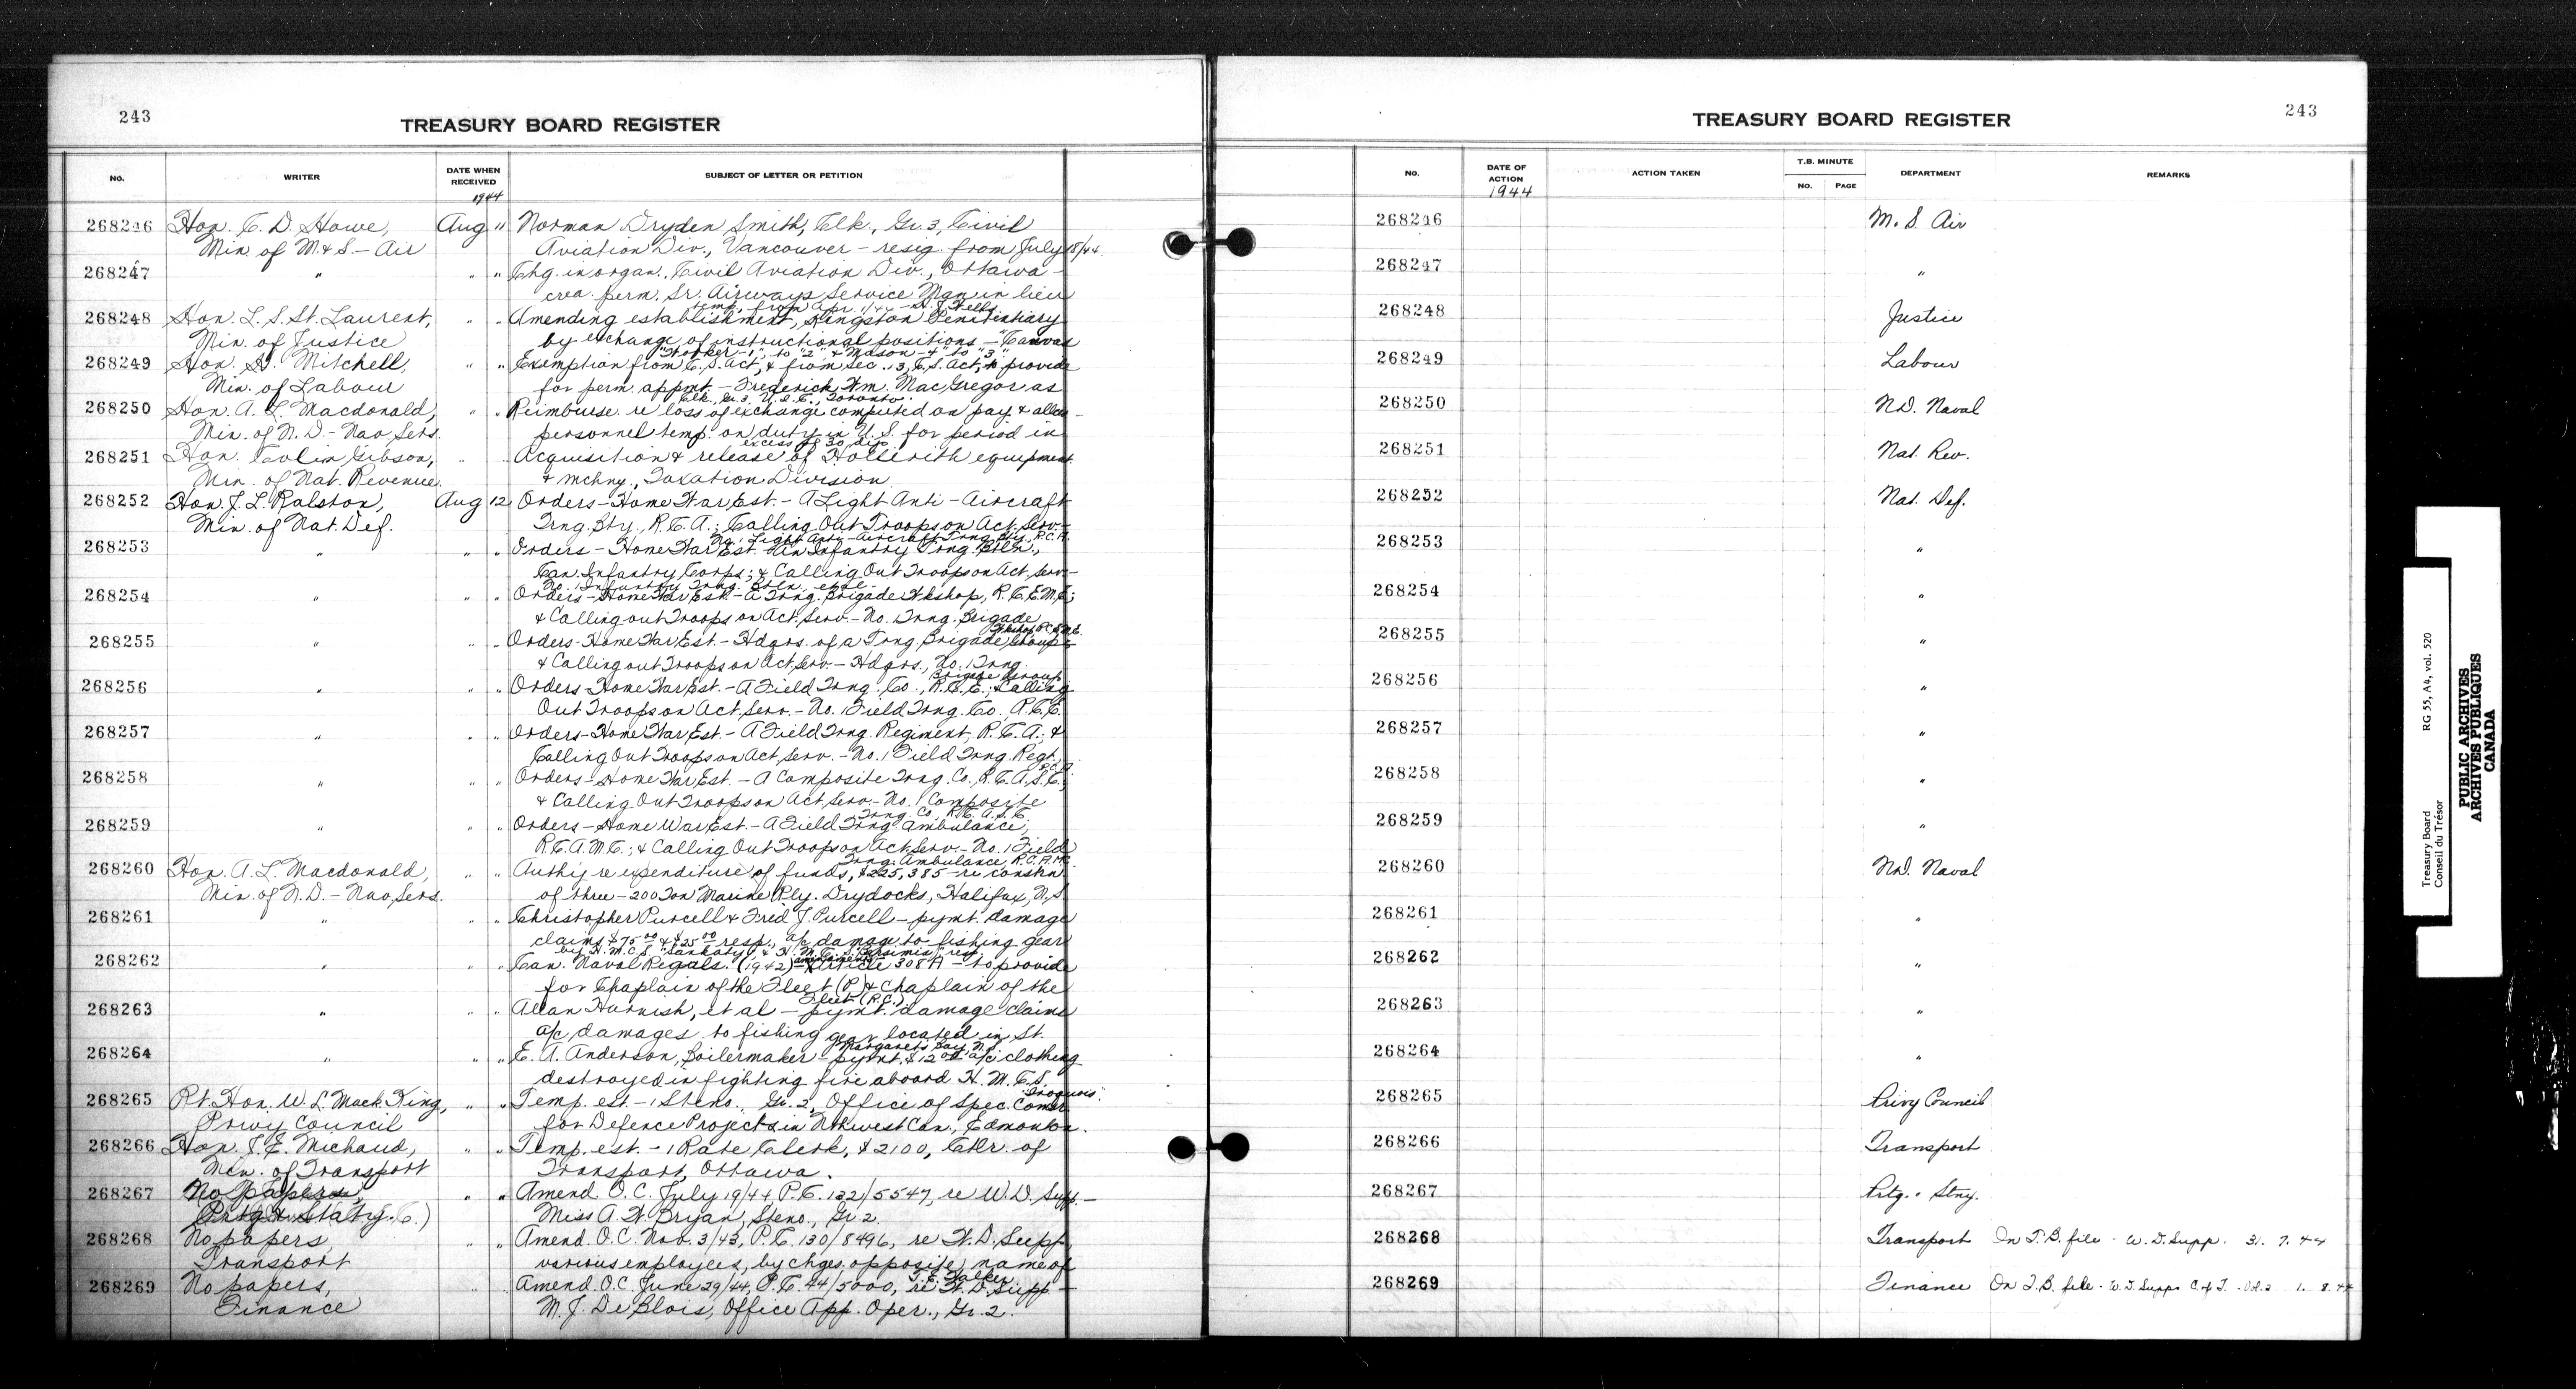 243
TREASURY BOARD REGISTER
NO. WRITER DATE WHEN RECEIVED SUBJECT OF LETTER OR PETITION
1944
268246 Hon. C. D. Howe, Aug 11 Norman Dryden Smith, Clk., Gr. 3, Civil
Min. of M. & S. - Air Aviation Div., Vancouver - resig. from July 18/44.
268247 " " " Chg. in organ., Civil Aviation Div., Ottawa -
crea. perm. Sr. Airways Service Man in lieu
temp. from Apr. 1/44
268248 Hon. L. S. St. Laurent, " " Amending establishment, Kingston Penitentiary
Min. of Justice by exchange of instructional positions - "Canvas
Worker - 1" to "2" & "Mason - 4" to "3"
268249 Hon. H. Mitchell, " " Exemption from C.S. Act, & from Sec. 13, C.S. Act, to provide
Min. of Labour for perm. appmt. - Frederick Wm. MacGregor as
Clk., Gr. 3, U.I.C., Toronto.
268250 Hon. A. L. Macdonald, " " Reimburse. re loss of exchange computed on pay & allces -
Min. of N.D. - Nav. Servs. personnel temp. on duty in U.S. for period in
excess of 30 dys.
268251 Hon. Colin Gibson, " " Acquisition & release of Hollerith equipment
Min. of Nat. Revenue. & mchny., Taxation Division
268252 Hon. J. L. Ralston, Aug 12 Orders - Home War Est. - A Light Anti-Aircraft
Min. of Nat. Def. Trng. Bty., R.C.A.; Calling Out Troops on Act. Serv. -
No. 1 Light Anti-Aircraft Trng. Bty., R.C.A.
268253 " " " Orders - Home War Est. - An Infantry Trng. Btln.,
Can. Infantry Corps; & Calling Out Troops on Act. Serv. -
No. 1 Infantry Trng. Btln.
268254 " " " Orders - Home War Est. - A Trng. Brigade Wkshop, R.C.E.M.E.;
& Calling out Troops on Act. Serv. - No. 1 Trng. Brigade
Wkshop, R.C.E.M.E.
268255 " " " Orders - Home War Est. - Hdqrs. of a Trng. Brigade Group;
& Calling out Troops on Act. Serv. - Hdqrs., No. 1 Trng.
Brigade Group
268256 " " " Orders - Home War Est. - A Field Trng. Co., R.C.E.; & Calling
Out Troops on Act. Serv. - No. 1 Field Trng. Co., R.C.E.
268257 " " " Orders - Home War Est. - A Field Trng. Regiment, R.C.A.; &
Calling Out Troops on Act. Serv. - No. 1 Field Trng. Regt.,
R.C.A.
268258 " " " Orders - Home War Est. - A Composite Trng. Co., R.C.A.S.C.;
& Calling Out Troops on Act. Serv. - No. 1 Composite
Trng. Co., R.C.A.S.C.
268259 " " " Orders - Home War Est. - A Field Trng. Ambulance,
R.C.A.M.C.; & Calling Out Troops on Act. Serv. - No. 1 Field
Trng. Ambulance, R.C.A.M.C.
268260 Hon. A. L. Macdonald, " " Authy. re expenditure of funds, $225,385 - re constrn.
Min. of N.D. - Nav. Servs. of three - 200 Ton Marine Rly. Drydocks, Halifax, N.S.
268261 " " " Christopher Purcell & Fred J. Purcell - pymt. damage
claims $75.00 & $25.00 resp., a/c damage to fishing gear
by H.M.C.S. "Sankaty" & H.M.C.S. resp.
268262 " " " Can. Naval Regals. (1942) - amendment Article 308A - to provide
for Chaplain of the Fleet (P) & Chaplain of the
Fleet (R.C.)
268263 " " " Allan Harnish, et al - pymt. damage claims
a/c damages to fishing gear located in St.
Margarets Bay, N.S.
268264 " " " E. A. Anderson, Boilermaker - pymt. $12.00 a/c clothing
destroyed in fighting fire aboard H.M.C.S.
"Iroquois".
268265 Rt. Hon. W. L. Mack. King, " " Temp. est. - 1 Steno., Gr. 2, Office of Spec. Comsr.
Privy Council for Defence Projects in Nthwest Can., Edmonton.
268266 Hon. J. E. Michaud, " " Temp. est. - 1 Rate Clerk, $2100, Ctlr. of
Min. of Transport Transport, Ottawa.
268267 No papers, " " Amend. O.C. July 19/44, P.C. 132/5547, re W.D. Supp. -
Prtg. & Staty. Miss A. W. Bryan, Steno., Gr. 2.
268268 No papers, " " Amend. O.C. Nov. 3/43, P.C. 130/8496, re W.D. Supp.
Transport various employees, by chges. opposite name of
T. E. Walker
268269 No papers, " " Amend. O.C. June 29/44, P.C. 44/5000, re W.D. Supp. -
Finance M. J. DeBlois, Office App. Oper., Gr. 2.
TREASURY BOARD REGISTER
243
NO. DATE OF ACTION ACTION TAKEN T.B. MINUTE NO. PAGE DEPARTMENT REMARKS
1944
268246 M. S. Air
268247 "
268248 Justice
268249 Labour
268250 N.D. Naval
268251 Nat. Rev.
268252 Nat. Def.
268253 "
268254 "
268255 "
268256 "
268257 "
268258 "
268259 "
268260 N.D. Naval
268261 "
268262 "
268263 "
268264 "
268265 Privy Council
268266 Transport
268267 Prtg. & Stny.
268268 Transport On T.B. file - W.D. Supp. 31. 7. 44
268269 Finance On T.B. file - W.D. Supp. C. of T. 1. 8. 44
Treasury Board
Conseil du Trésor
RG 55, A4, vol. 520
PUBLIC ARCHIVES
ARCHIVES PUBLIQUES
CANADA